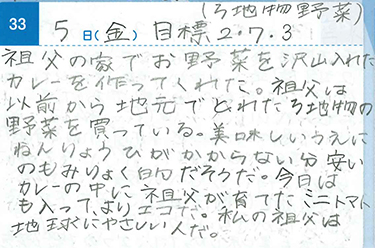 (ろ地物野菜)
33 5日(金) 目標2.7.3
祖父の家でお野菜を沢山入れた
カレーを作ってくれた。祖父は
以前から地元でとれたろ地物の
野菜を買っている。美味しいうえに
ねんりょうひがかからない分安い
のもみりょく的だそうだ。今日は
カレーの中に祖父が育てたミニトマト
も入って、よりエコだ。私の祖父は
地球にやさしい人だ。